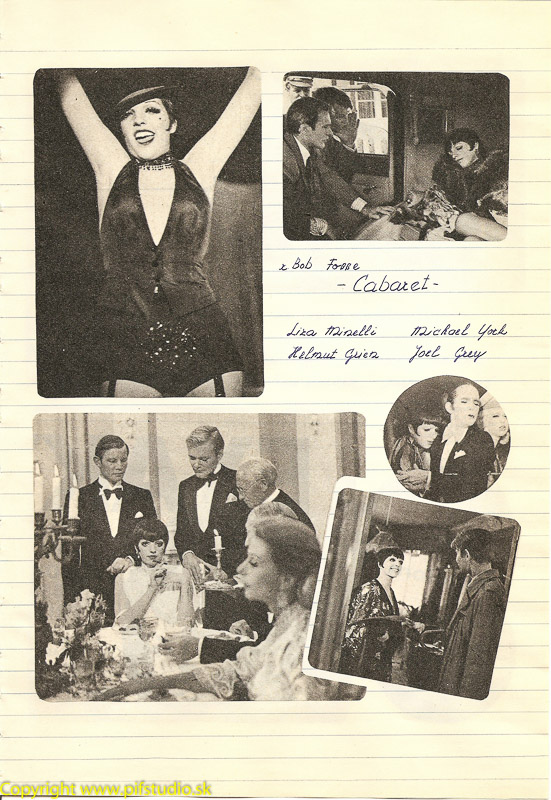 r Bob Fosse
- Cabaret -
Liza Minelli Michael York
Helmut Grien Joel Grey
Copyright www.pifstudio.sk